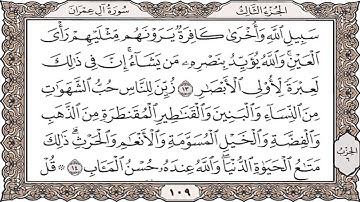 سُورَةُ آلِ عِمْرَانَ الجُزءُ الثَّالِثُ
سَبِيلِ ٱللَّهِ وَأُخْرَىٰ كَافِرَةٌ يَرَوْنَهُم مِّثْلَيْهِمْ رَأْىَ
ٱلْعَيْنِ ۚ وَٱللَّهُ يُؤَيِّدُ بِنَصْرِهِۦ مَن يَشَآءُ ۗ إِنَّ فِى ذَٰلِكَ
لَعِبْرَةً لِّأُو۟لِى ٱلْأَبْصَٰرِ ١٣ زُيِّنَ لِلنَّاسِ حُبُّ ٱلشَّهَوَٰتِ
مِنَ ٱلنِّسَآءِ وَٱلْبَنِينَ وَٱلْقَنَٰطِيرِ ٱلْمُقَنطَرَةِ مِنَ ٱلذَّهَبِ
وَٱلْفِضَّةِ وَٱلْخَيْلِ ٱلْمُسَوَّمَةِ وَٱلْأَنْعَٰمِ وَٱلْحَرْثِ ۗ ذَٰلِكَ
مَتَٰعُ ٱلْحَيَوٰةِ ٱلدُّنْيَا ۖ وَٱللَّهُ عِندَهُۥ حُسْنُ ٱلْمَـَٔابِ ١٤ ۞ قُلْ
الحِزْبُ
٦
١٠٩